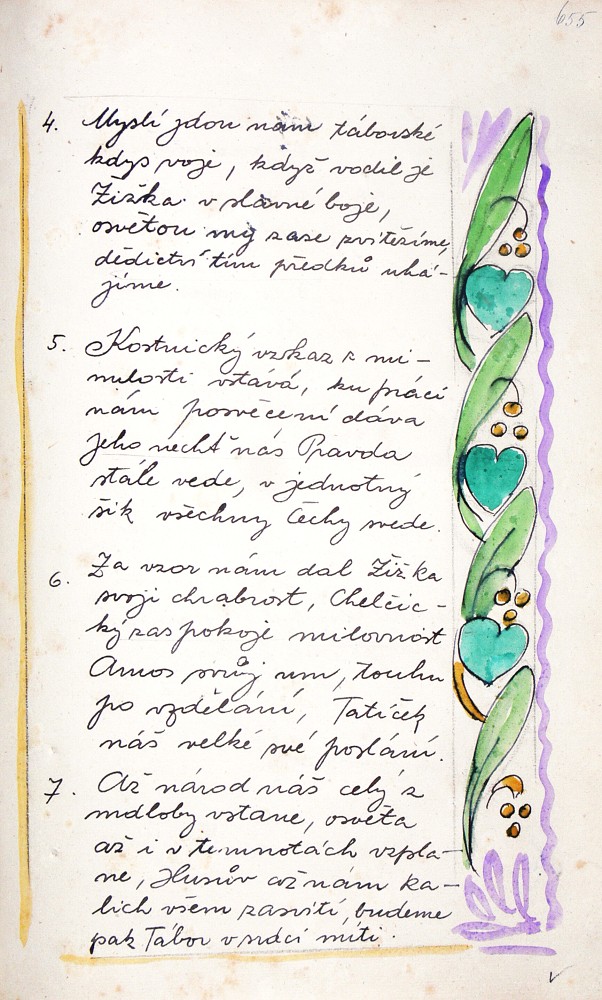 655
4. Myslí jdou nám táborské
kdys voje, když vodil je
Žižka v slavné boje,
osvětou my zase zvítězíme,
dědictví tím předků uhá-
jíme.
5. Kostnický vzkaz z mi-
nulosti vstává, ku práci
nám posvěcení dává
jeho nechť nás Pravda
stále vede, v jednotný
šik všechny Čechy svede.
6. Za vzor nám dal Žižka
svoji chrabrost, Chelčic-
ký zas pokoje milovnost
Amos svůj um, touhu
po vzdělání, Tatíček
náš velké své poslání.
7. Až národ náš celý z
mdloby vstane, osvěta
až i v temnotách vzpla-
ne, Husův až nám ka-
lich všem zasvítí, budeme
pak Tábor v srdci míti.